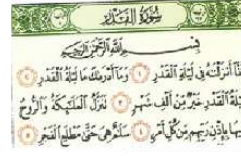 سُورَةُ القَدْرِ
بِسْمِ اللَّهِ الرَّحْمَٰنِ الرَّحِيمِ
نَّا أَنزَلْنَٰهُ فِى لَيْلَةِ الْقَدْرِ وَمَا أَدْرَىٰكَ مَا لَيْلَةُ الْقَدْرِ
لَةُ الْقَدْرِ خَيْرٌ مِّنْ أَلْفِ شَهْرٍ تَنَزَّلُ الْمَلَٰٓئِكَةُ وَالرُّوحُ
هَا بِإِذْنِ رَبِّهِم مِّن كُلِّ أَمْرٍ سَلَٰمٌ هِىَ حَتَّىٰ مَطْلَعِ الْفَجْرِ